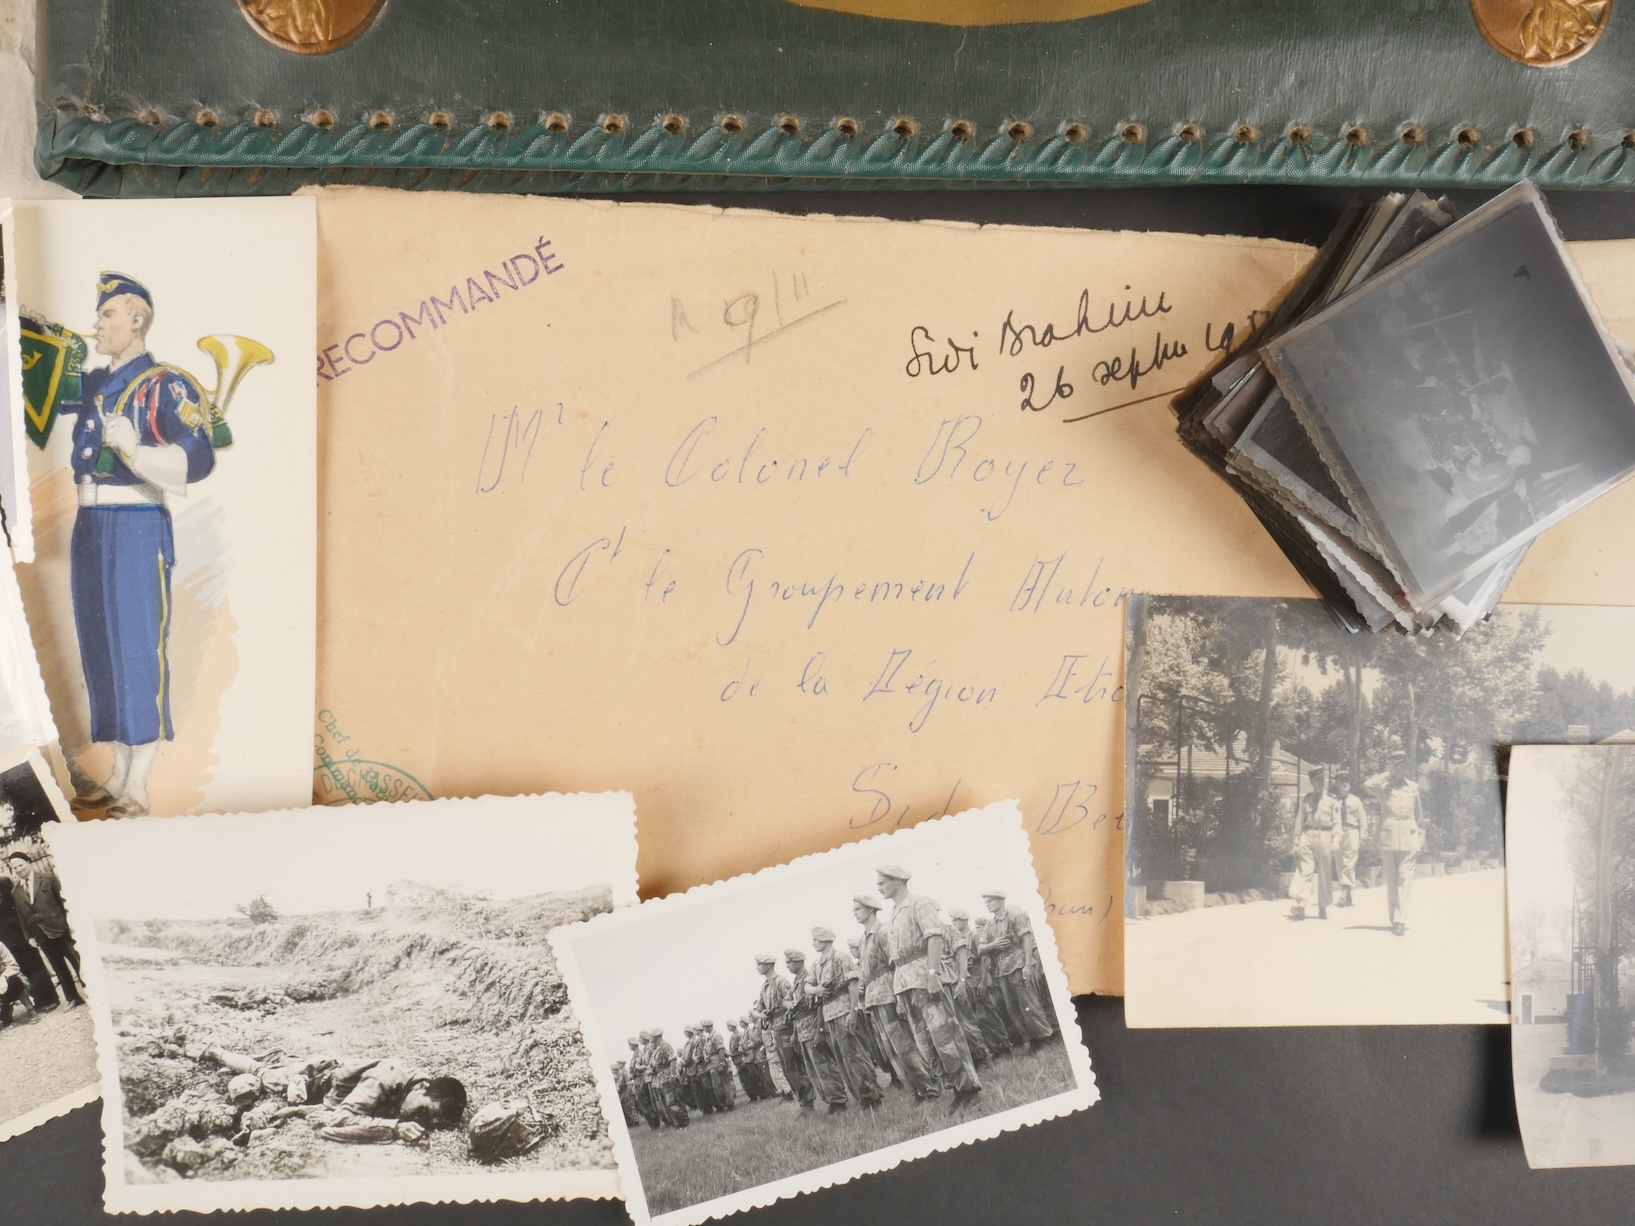 RECOMMANDÉ
Sidi Brahim
26 septbre 195
Mr le Colonel Royer
Ct le Groupement Auton
de la Légion Etr
Sidi Bel
Chef de
Comman